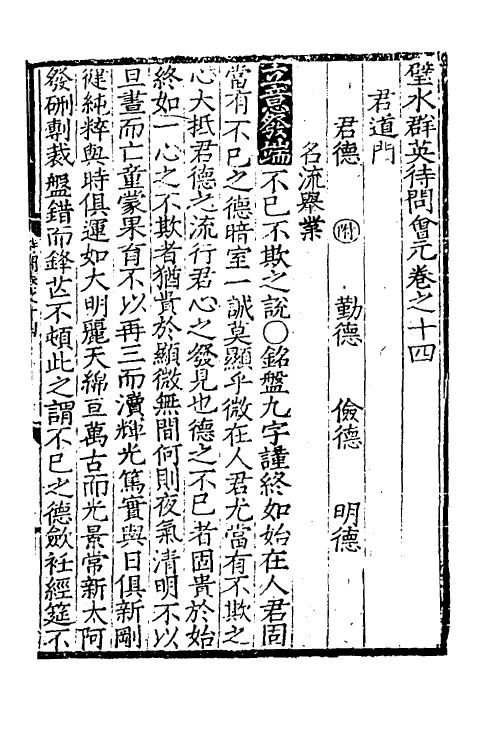 璧水群英待問會元卷之十四
君道門
君德 附 勤德 儉德 明德
名流舉業
立意發端 不已不欺之說○銘盤九字謹終如始在人君固
當有不已之德暗室一誠莫顯乎微在人君尤當有不欺之
心大抵君德之流行君心之發見也德之不已者固貴於始
終如一心之不欺者猶貴於顯微無間何則夜氣清明不以
旦晝而亡童蒙果育不以再三而瀆輝光篤實與日俱新剛
健純粹與時俱運如大明麗天綿亘萬古而光景常新太阿
發硎剸裁盤錯而鋒芒不頓此之謂不已之德歛衽經筵不